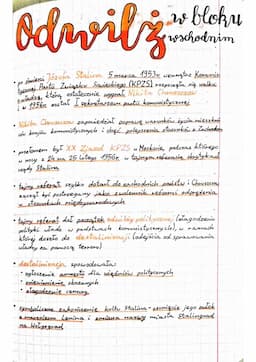 odwilż w bloku
wschodnim
• po śmierci Józefa Stalina 5 marca 1953r wewnątrz Komunis-
tycznej Partii Związku Sowieckiego (KPZS) rozpoczęła się walka
o władzę, którą ostatecznie wygrał Nikita Chruszczow
w 1956r został I sekretarzem partii komunistycznej
• Nikita Chruszczow zapowiedział poprawę warunków życia mieszkań-
ców krajów komunistycznych i chęć polepszenia stosunków z Zachodem
• przełomem był XX Zjazd KPZS w Moskwie, podczas którego
w nocy z 24 na 25 lutego 1956r w tajnym referacie skrytykował
rządy Stalina
• tajny referat szybko dotarł do zachodnich państw i Chruszczow
zaczął być postrzegany jako zwolennik reform i odprężenia
w stosunkach międzynarodowych
• tajny referat dał początek odwilży politycznej (złagodzenia
polityki władz w państwach komunistycznych), w ramach
której doszło do destalinizacji (odejścia od sprawowania
władzy za pomocą terroru)
• destalinizacja spowodowała:
- ogłoszenie amnestii dla więźniów politycznych
- skazanych
- złagodzenie cenzury
• symboliczne zakończenie kultu Stalina - usunięcie jego zwłok
z mauzoleum Lenina i zmiana nazwy miasta Stalingrad
na Wołgograd